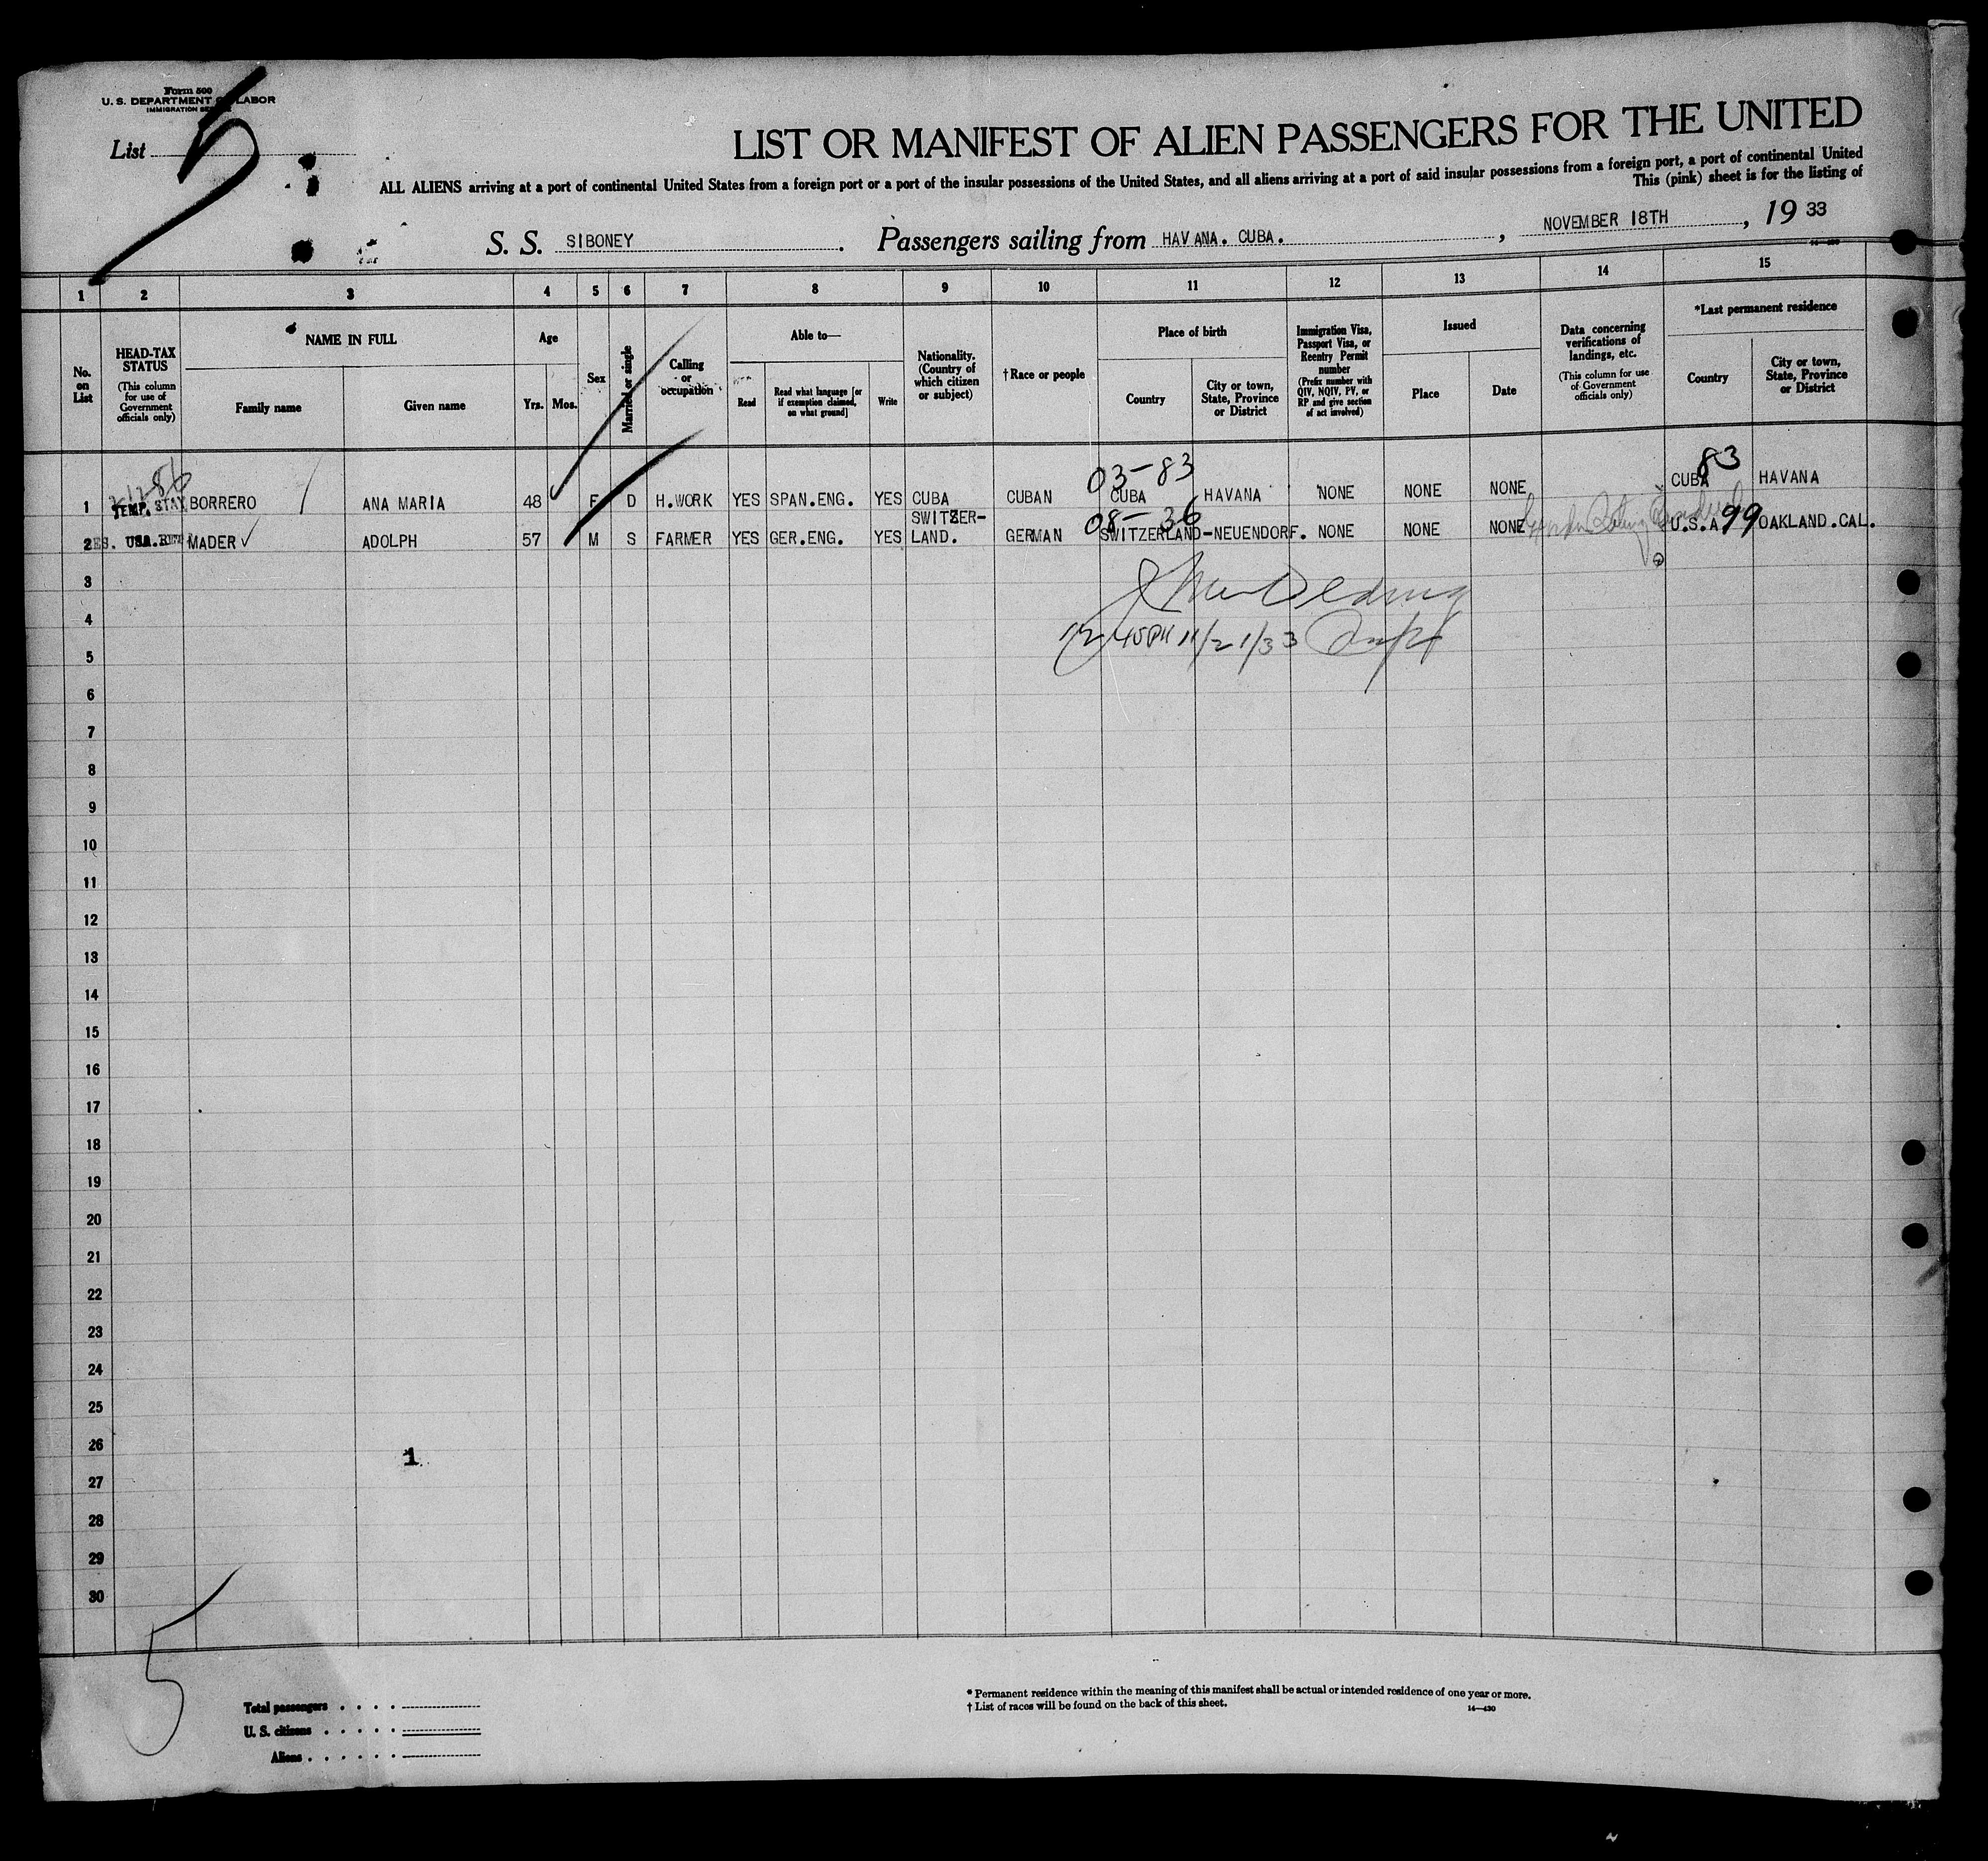 Form 500
U. S. DEPARTMENT OF LABOR
IMMIGRATION SERVICE
List 5
LIST OR MANIFEST OF ALIEN PASSENGERS FOR THE UNITED
ALL ALIENS arriving at a port of continental United States from a foreign port or a port of the insular possessions of the United States, and all aliens arriving at a port of said insular possessions from a foreign port, a port of continental United
This (pink) sheet is for the listing of
S. S. SIBONEY . Passengers sailing from HAVANA. CUBA. , NOVEMBER 18TH , 19 33
1 2 3 4 5 6 7 8 9 10 11 12 13 14 15
No. on List
HEAD-TAX STATUS
(This column for use of Government officials only)
NAME IN FULL
Family name
Given name
Age
Yrs. Mos.
Sex
Married or single
Calling or occupation
Able to—
Read
Read what language [or if exemption claimed, on what ground]
Write
Nationality. (Country of which citizen or subject)
†Race or people
Place of birth
Country
City or town, State, Province or District
Immigration Visa, Passport Visa, or Reentry Permit number
(Prefix number with QIV, NQIV, PV, or RP and give section of act involved)
Issued
Place
Date
Data concerning verifications of landings, etc.
(This column for use of Government officials only)
*Last permanent residence
Country
City or town, State, Province or District
03-83 83
1 TEMP. STAY BORRERO ANA MARIA 48 F D H.WORK YES SPAN.ENG. YES CUBA CUBAN CUBA HAVANA NONE NONE NONE CUBA HAVANA
08-36 99
2 USA. MADER ADOLPH 57 M S FARMER YES GER.ENG. YES SWITZER-
LAND. GERMAN SWITZERLAND-NEUENDORF. NONE NONE NONE U.S.A OAKLAND.CAL.
12 45 PM 11/21/33
3
4
5
6
7
8
9
10
11
12
13
14
15
16
17
18
19
20
21
22
23
24
25
26
1
27
28
29
30
5
Total passengers
U. S. citizens
Aliens
* Permanent residence within the meaning of this manifest shall be actual or intended residence of one year or more.
† List of races will be found on the back of this sheet.
14—430